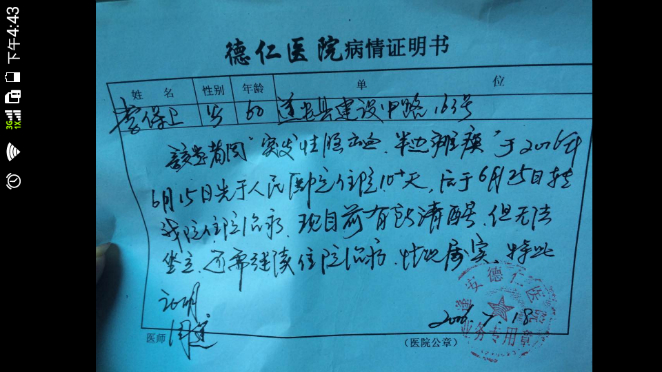 下午4:43
3G
1X
德仁医院病情证明书
姓名 性别 年龄 单位
保卫 男 60 建设中路163号
该患者因"突发性脑出血、半边瘫痪"于2016年
6月15日先于人民医院住院10+天,后于6月25日转
我院住院治疗,现目前有意识清醒,但无法
坐立,还需继续住院治疗,情况属实,特此
证明
医师
(医院公章)
安德仁医院
业务专用章